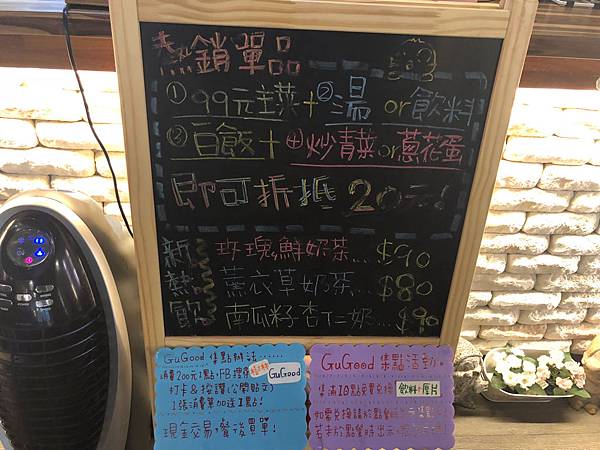 熱銷單品
①99元主菜+②湯or飲料
③白飯+④炒青菜or蔥花蛋
即可折抵20元!
新 玫瑰鮮奶茶...$90
熱 薰衣草奶茶...$80
飲 南瓜籽杏仁奶...$90
GuGood 集點辦法......
消費200元1點，FB搜尋 GuGood
打卡&按讚(公開貼文)
1張消費單加送1點!
現金交易，餐後買單!
GuGood 集點活動。
集滿10點免費兌換 飲料+厚片
如需兌換請於點餐時
若未於點餐時出示，